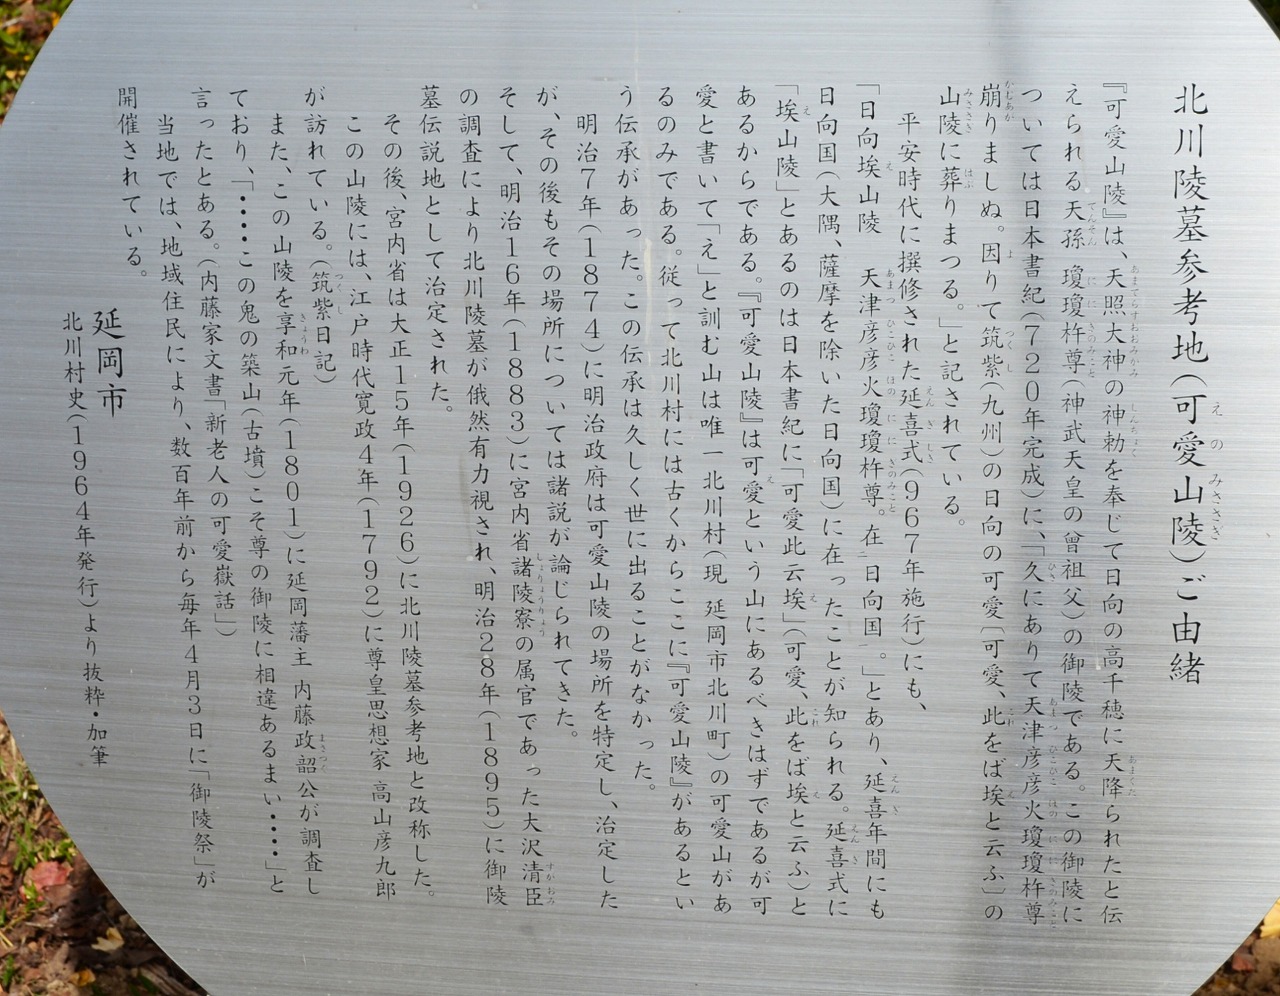 北川陵墓参考地(可愛山陵)ご由緒
『可愛山陵』は、天照大神の神勅を奉じて日向の高千穂に天降られたと伝
えられる天孫 瓊瓊杵尊(神武天皇の曾祖父)の御陵である。この御陵に
ついては日本書紀(720年完成)に、「久にありて天津彦彦火瓊瓊杵尊
崩りましぬ。因りて筑紫(九州)の日向の可愛〔可愛、此をば埃と云ふ〕の
山陵に葬りまつる。」と記されている。
平安時代に撰修された延喜式(967年施行)にも、
「日向埃山陵 天津彦彦火瓊瓊杵尊。在二日向国一。」とあり、延喜年間にも
日向国(大隅、薩摩を除いた日向国)に在ったことが知られる。延喜式に
「埃山陵」とあるのは日本書紀に「可愛此云埃」(可愛、此をば埃と云ふ)と
あるからである。『可愛山陵』は可愛という山にあるべきはずであるが可
愛と書いて「え」と訓む山は唯一北川村(現 延岡市北川町)の可愛山があ
るのみである。従って北川村には古くからここに『可愛山陵』があるとい
う伝承があった。この伝承は久しく世に出ることがなかった。
明治7年(1874)に明治政府は可愛山陵の場所を特定し、治定した
が、その後もその場所については諸説が論じられてきた。
そして、明治16年(1883)に宮内省諸陵寮の属官であった大沢清臣
の調査により北川陵墓が俄然有力視され、明治28年(1895)に御陵
墓伝説地として治定された。
その後、宮内省は大正15年(1926)に北川陵墓参考地と改称した。
この山陵には、江戸時代寛政4年(1792)に尊皇思想家 高山彦九郎
が訪れている。(筑紫日記)
また、この山陵を享和元年(1801)に延岡藩主 内藤政韶公が調査し
ており、「・・・・・この鬼の築山(古墳)こそ尊の御陵に相違あるまい・・・・・」と
言ったとある。(内藤家文書「新老人の可愛嶽話」)
当地では、地域住民により、数百年前から毎年4月3日に「御陵祭」が
開催されている。
延岡市
北川村史(1964年発行)より抜粋・加筆